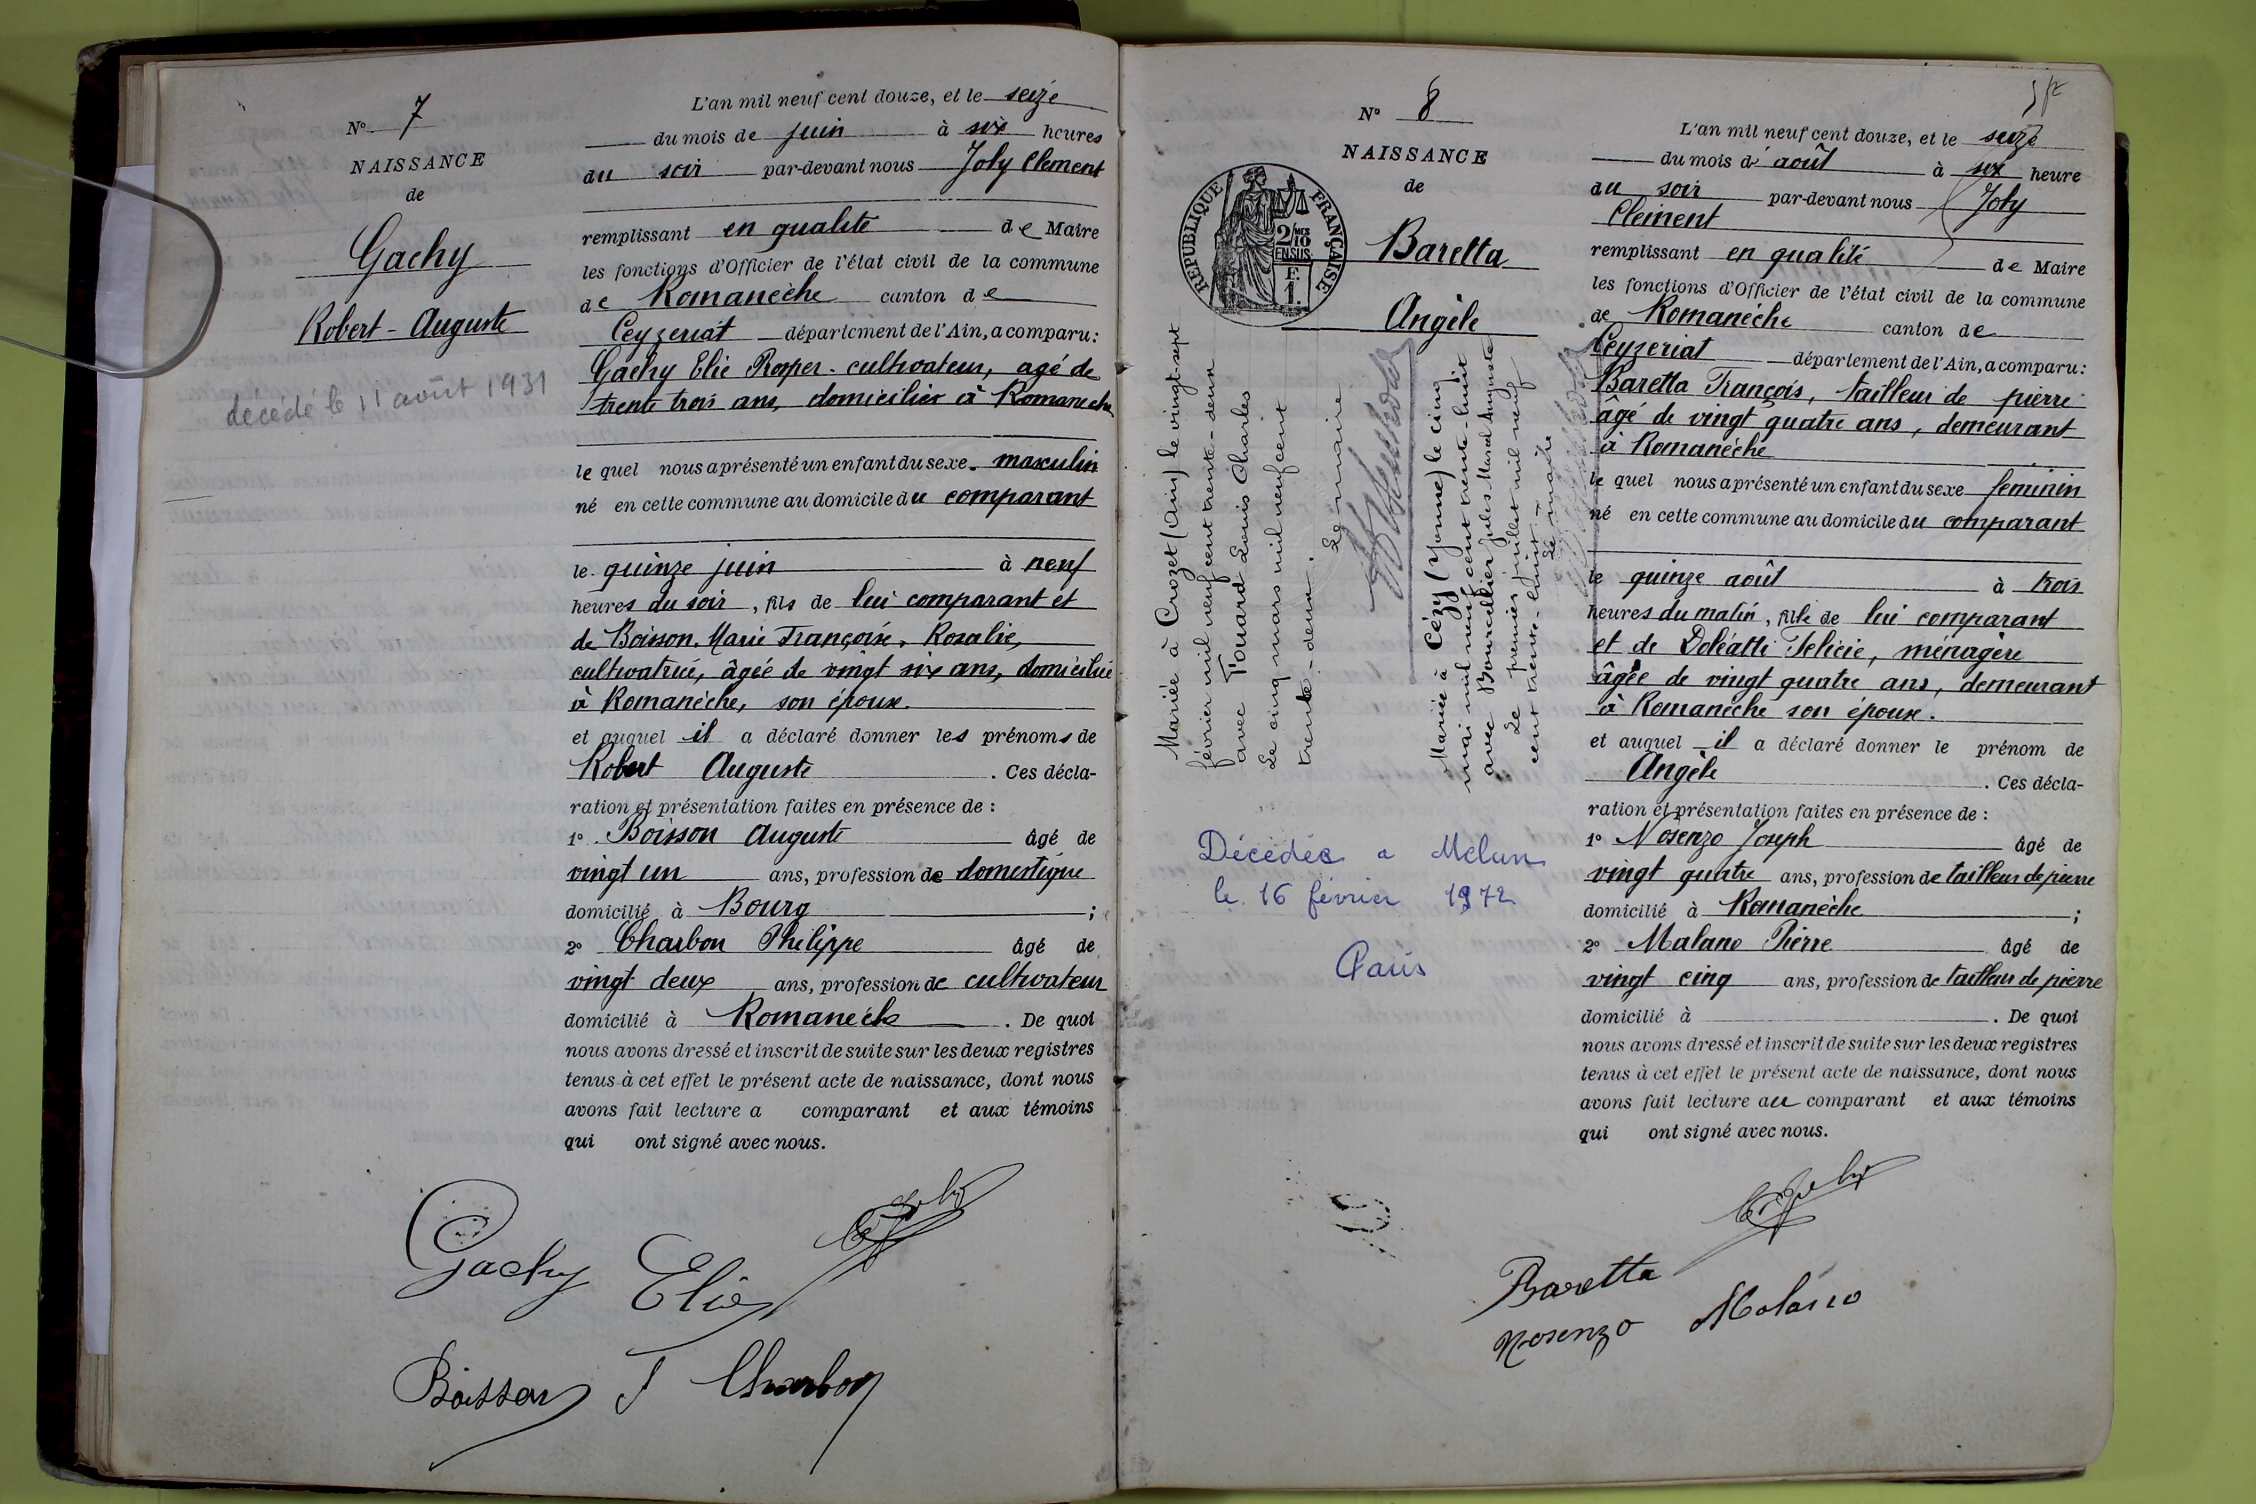 N° 7
NAISSANCE
de
Gachy
Robert-Auguste
décédé le 11 août 1931
L'an mil neuf cent douze, et le seize
du mois de juin à six heures
du soir par-devant nous Joly Clement
remplissant en qualité de Maire
les fonctions d'Officier de l'état civil de la commune
de Romanèche canton de
Ceyzeriat département de l'Ain, a comparu :
Gachy Elie Prosper - cultivateur, agé de
trente trois ans, domicilié à Romanèche
le quel nous a présenté un enfant du sexe masculin
né en cette commune au domicile du comparant
le quinze juin à neuf
heures du soir, fils de lui comparant et
de Boisson Marie Françoise, Rosalie,
cultivatrice, âgée de vingt six ans, domiciliée
à Romanèche, son épouse.
et auquel il a déclaré donner les prénoms de
Robert Auguste . Ces décla-
ration et présentation faites en présence de :
1° Boisson Auguste âgé de
vingt un ans, profession de domestique
domicilié à Bourg ;
2° Charbon Philippe âgé de
vingt deux ans, profession de cultivateur
domicilié à Romanèche . De quoi
nous avons dressé et inscrit de suite sur les deux registres
tenus à cet effet le présent acte de naissance, dont nous
avons fait lecture a comparant et aux témoins
qui ont signé avec nous.
Gachy Elie
Boisson J Charbon
N° 8
NAISSANCE
de
Baretta
Angèle
RÉPUBLIQUE FRANÇAISE
2/10 EN SUS
F. 1.
Mariée à Crozet (Ain) le vingt-sept
février mil neuf cent trente-deux
avec Touard Louis Charles
Le cinq mars mil neuf cent
trente-deux.
Le maire
Mariée à Cézy (Yonne) le cinq
mai mil neuf cent trente-huit
avec Bourcellier Jules Marcel Auguste
Le premier juillet mil neuf
cent trente-huit -
Le maire
Décédée a Melun
le 16 février 1972
Paris
L'an mil neuf cent douze, et le seize
du mois d'août à six heure
du soir par-devant nous Joly
Clement
remplissant en qualité de Maire
les fonctions d'Officier de l'état civil de la commune
de Romanèche canton de
Ceyzeriat département de l'Ain, a comparu :
Baretta François, tailleur de pierre
âgé de vingt quatre ans, demeurant
à Romanèche
le quel nous a présenté un enfant du sexe feminin
né en cette commune au domicile du comparant
le quinze août à trois
heures du matin, fille de lui comparant
et de Doléatti Felicie, ménagère
âgée de vingt quatre ans, demeurant
à Romanèche son épouse.
et auquel il a déclaré donner le prénom de
Angèle . Ces décla-
ration et présentation faites en présence de :
1° Nosenzo Joseph âgé de
vingt quatre ans, profession de tailleur de pierre
domicilié à Romanèche ;
2° Malano Pierre âgé de
vingt cinq ans, profession de tailleur de pierre
domicilié à . De quoi
nous avons dressé et inscrit de suite sur les deux registres
tenus à cet effet le présent acte de naissance, dont nous
avons fait lecture au comparant et aux témoins
qui ont signé avec nous.
Baretta
Nosenzo Malano